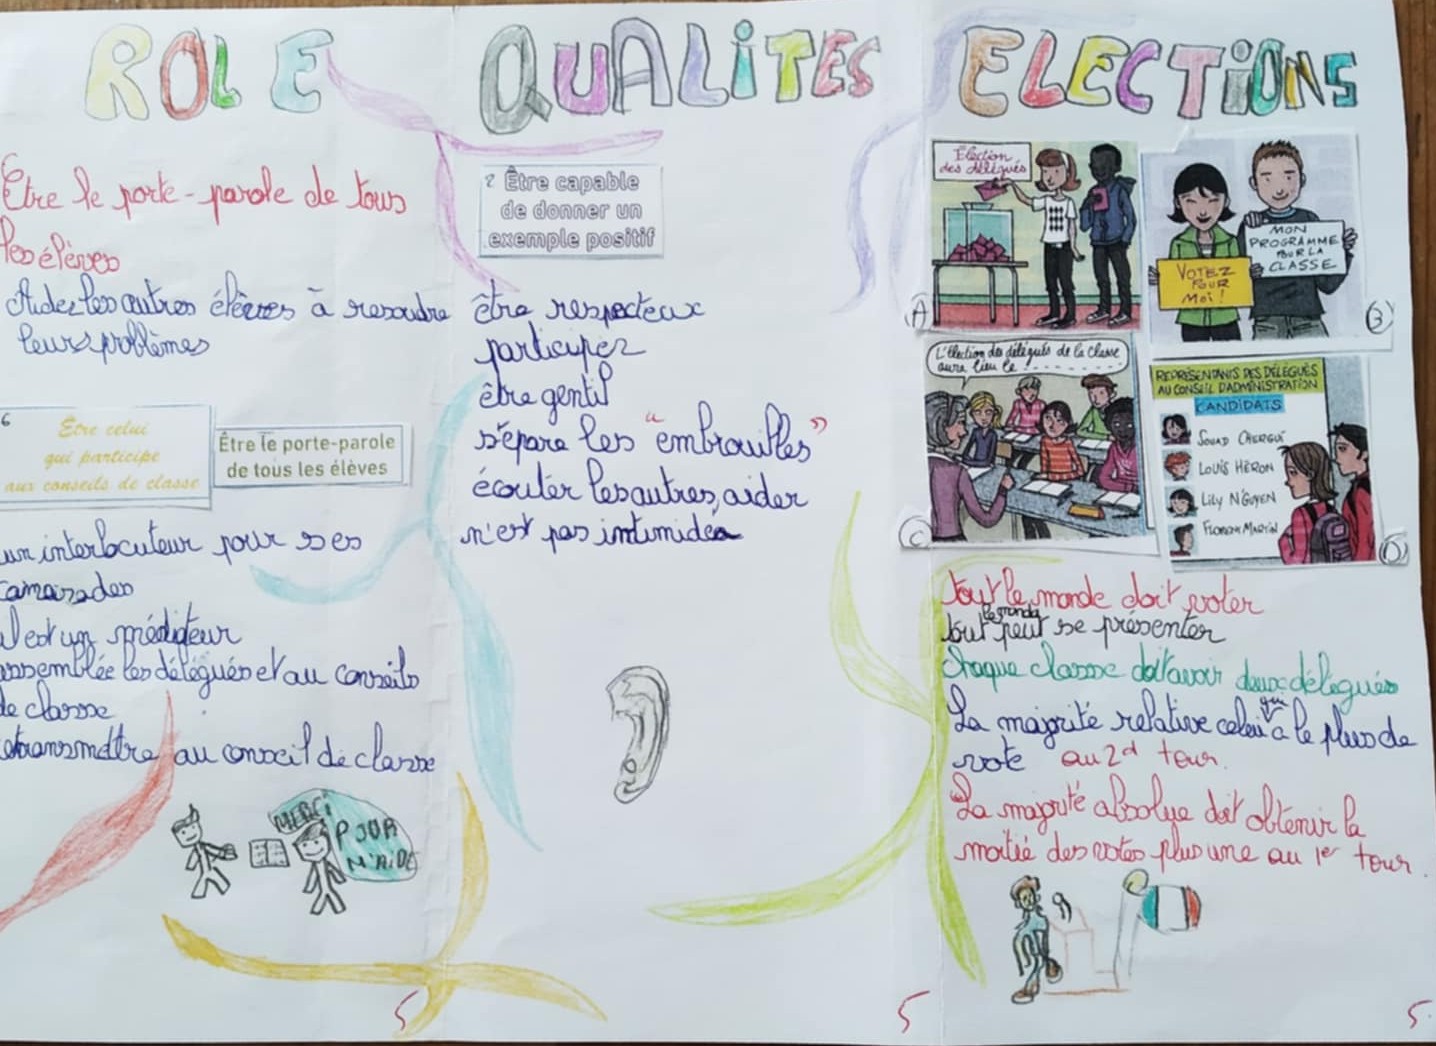 ROLE
Etre le porte-parole de tous
les élèves
Aidez les autres élèves à resoudre
leurs problèmes
6
Être celui
qui participe
aux conseils de classe
Être le porte-parole
de tous les élèves
un interlocuteur pour ses
camarades
il est un médiateur
assemblée les délégués et au conseils
de classe
et transmettre au conseil de classe
MERCI
POUR
M'AIDE
5
QUALiTES
2 Être capable
de donner un
exemple positif
être respecteux
participez
être gentil
sépare les "embrouilles"
écouter les autres, aider
n'est pas intimider
5
ELECTiONS
Élection
des délégués
A
VOTEZ
POUR
MOI !
MON
PROGRAMME
POUR LA
CLASSE
B
L'élection des délégués de la classe
aura lieu le
C
REPRÉSENTANTS DES DÉLÉGUÉS
AU CONSEIL D'ADMINISTRATION
CANDIDATS
SOUAD CHERGUI
LOUIS HÉRON
LILY N'GUYEN
FLORIAN MARTIN
D
tout le monde doit voter
tout le monde peut se présenter
chaque classe doit avoir deux délégués
La majorité relative celui qui a le plus de
vote au 2d tour.
La majorité absolue doit obtenir la
moitié des votes plus une au 1er tour.
5